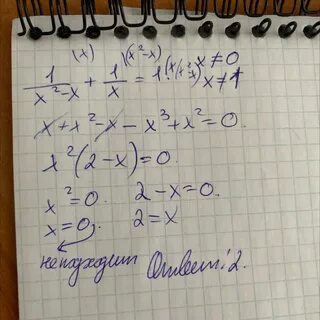 (x) (x²-x)
1/(x²-x) + 1/x = 1 (x(x²-x) x≠0
x≠1
x+x²-x-x³+x²=0.
x²(2-x)=0.
x²=0. 2-x=0.
x=0, 2=x
неподходит Ответ: 2.